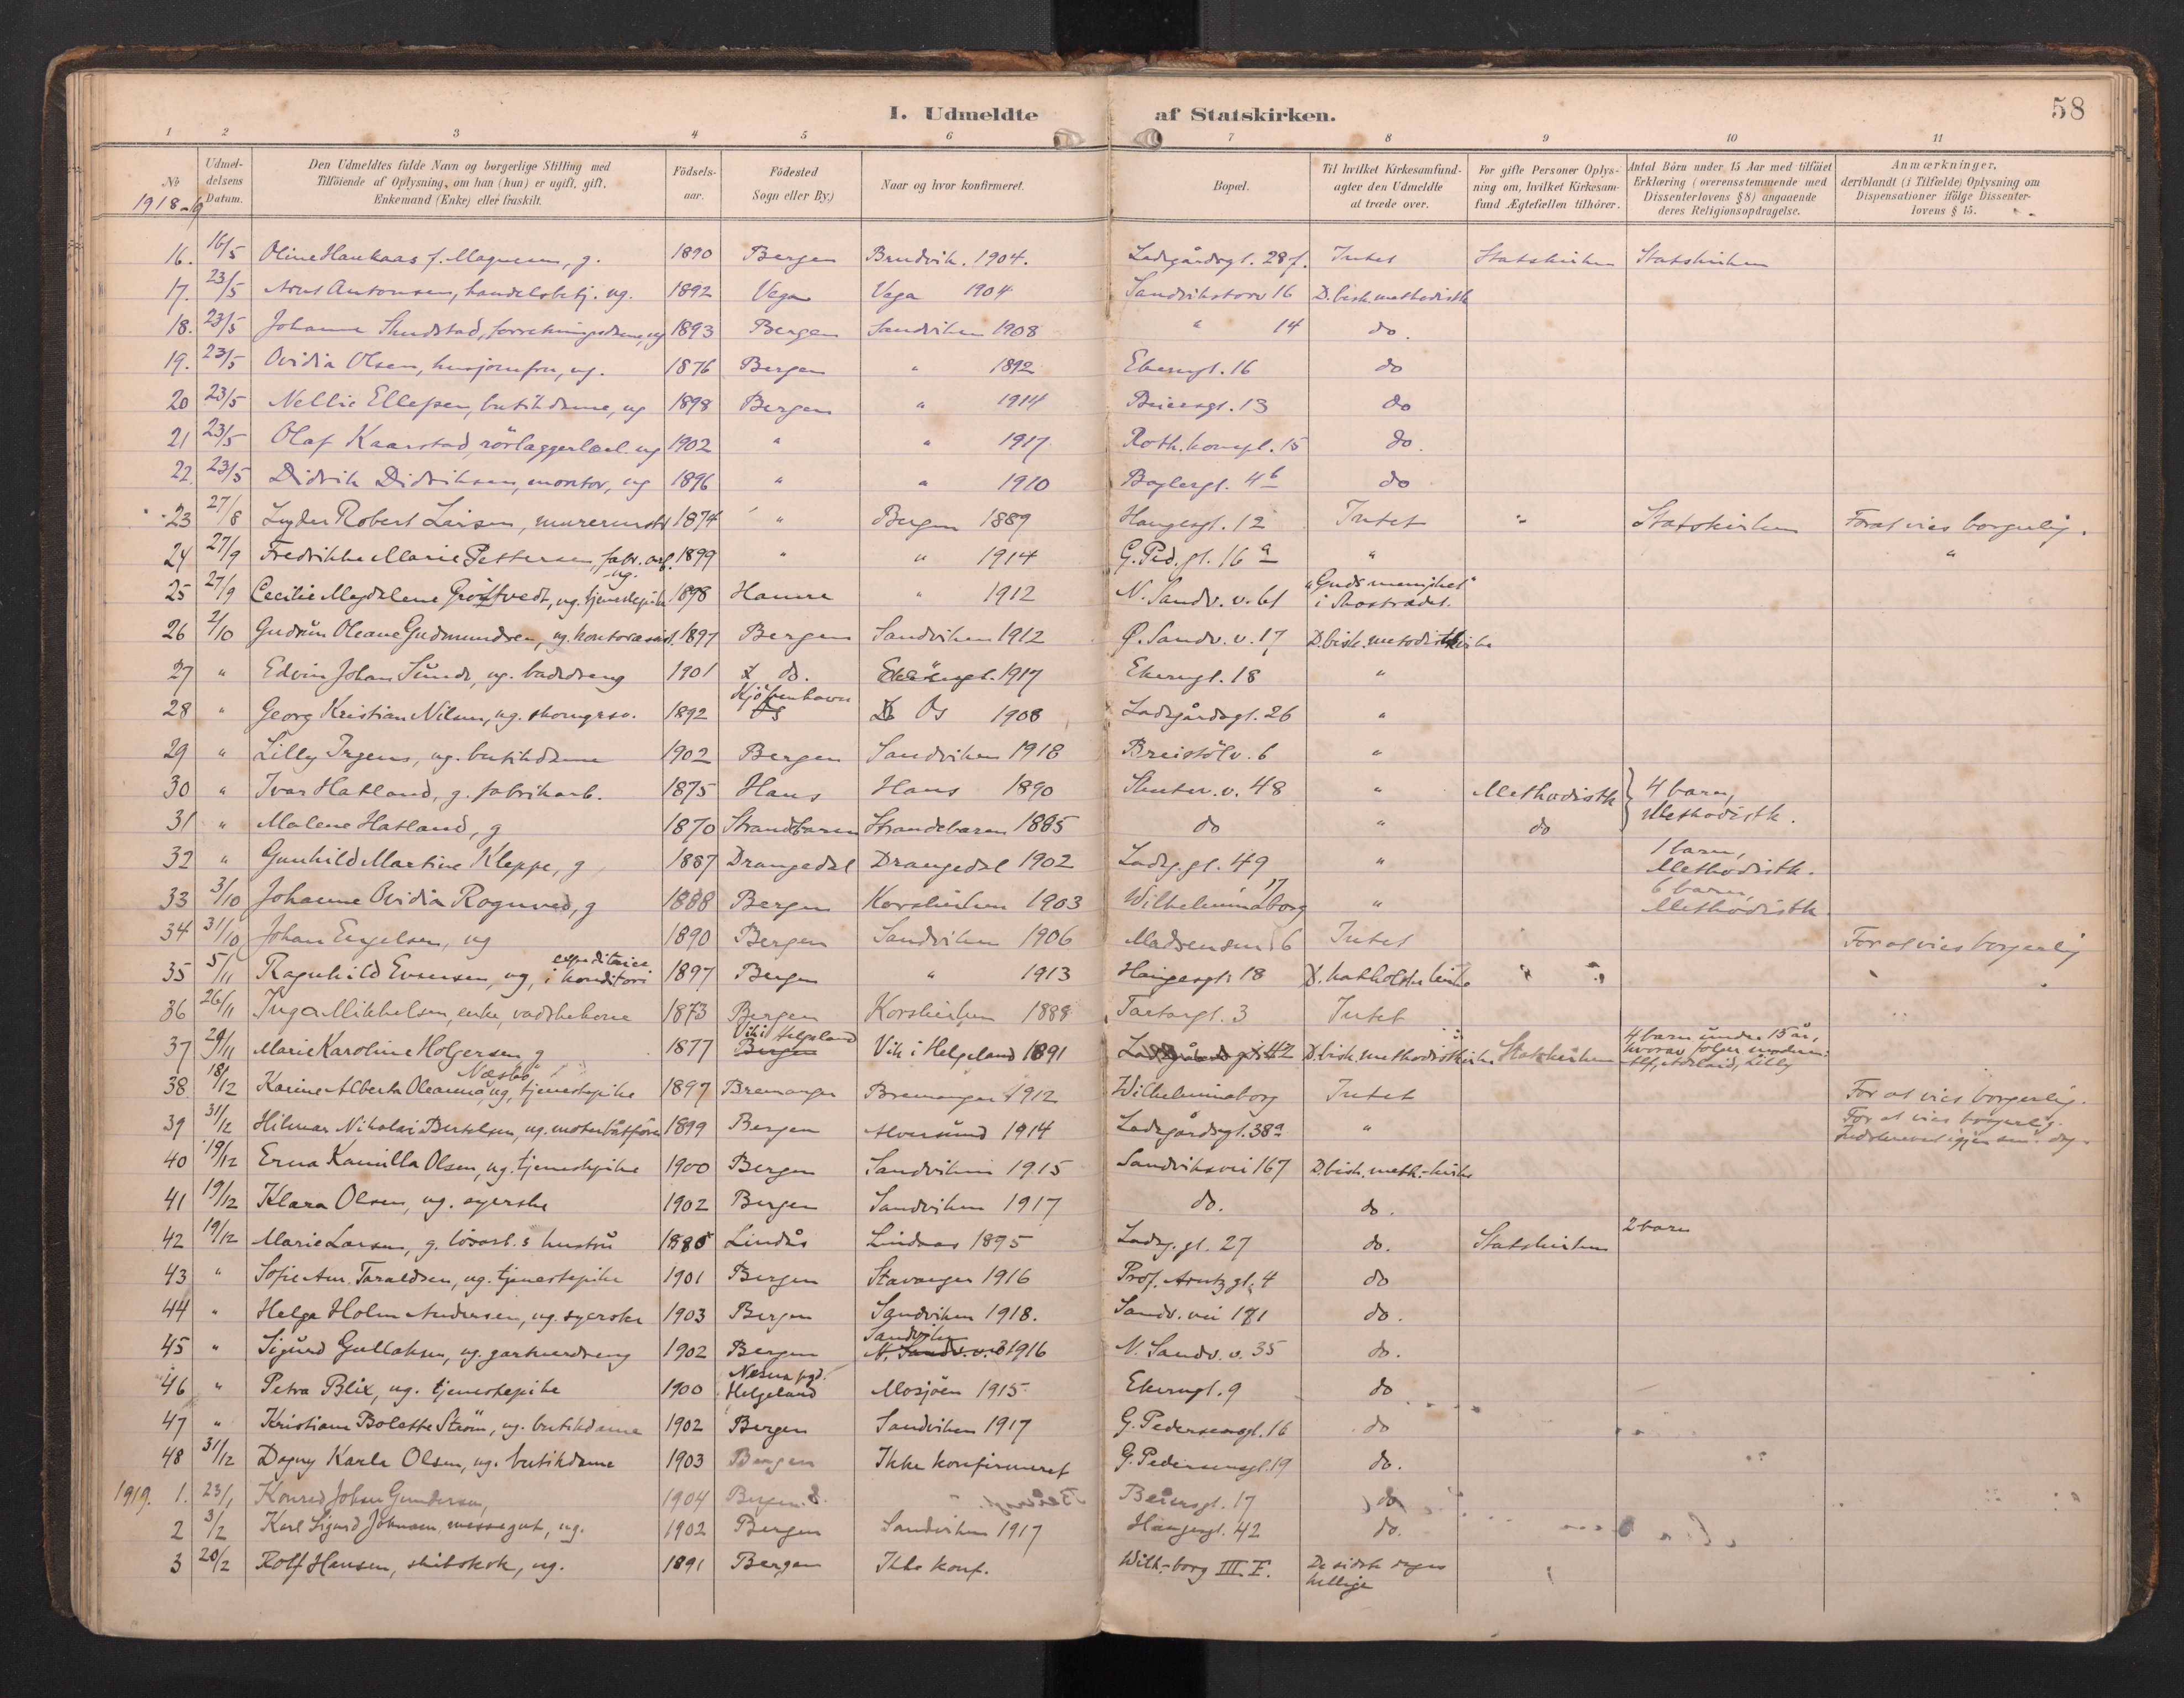 I. Udmeldte af Statskirken. 58
1 2 3 4 5 6 7 8 9 10 11
No 1918-19 | Udmeldelsens Datum. | Den Udmeldtes fulde Navn og borgerlige Stilling med Tilföiende af Oplysning, om han (hun) er ugift, gift, Enkemand (Enke) eller fraskilt. | Födselsaar. | Födested Sogn eller By.) | Naar og hvor konfirmeret. | Bopæl. | Til hvilket Kirkesamfund agter den Udmeldte at træde over. | For gifte Personer Oplysning om, hvilket Kirkesamfund Ægtefællen tilhörer. | Antal Börn under 15 Aar med tilföiet Erklæring (overensstemmende med Dissenterlovens § 8) angaaende deres Religionsopdragelse. | Anmærkninger, deriblandt (i Tilfælde) Oplysning om Dispensationer ifölge Dissenterlovens § 15.
16. 16/5 Oline Haukaas f. Magnusen, g. 1890 Bergen Bruvik. 1904. Ladegårdsgt. 28 f. Intet Statskirken Statskirken
17. 23/5 Antonsen, handelsbetj. ug. 1892 Vega Vega 1904 Sandvikstorv 16 D. bisk. methodistk
18. 23/5 Johanne ug 1893 Bergen Sandviken 1908 " 14 do.
19. 23/5 Ovidia Olsen, husjomfru, ug. 1876 Bergen " 1892 Ekerngt. 16 do
20 23/5 Nellie Ellefsen, butikdame, ug 1898 Bergen " 1914 Beiersgt. 13 do
21 23/5 Olaf Kaarstad, rörlæggerlærl. ug 1902 " " 1917 Roth. 15 do.
22. 23/5 Didrik Didriksen, montör, ug 1896 " " 1910 Baglergt. 4b do
23 27/8 Lyder Robert Larsen, murermstr 1874 " Bergen 1889 Haugesgt. 12 Intet " Statskirken For at vies borgerlig.
24 27/9 Fredrikke Marie Pettersen, fabr. arb. ug. 1899 " " 1914 G. Ped. gt. 16a " "
25 27/9 Cecilie Magdalene Gröstvedt, ug. tjenestepike 1898 Hamre " 1912 N. Sandv. v. 61 "Guds menighet" i Skostrædet.
26 2/10 Gudrun Oleane Gudmundsen, ug. kontorassist. 1897 Bergen Sandviken 1912 Ø. Sandv. v. 17 D. bisk. metodistkirke
27 " Edvin Johan Sunde, ug. badedreng 1901 do. 1917 Ekerngt. 18 "
28 " Georg Kristian Nilsen, ug. 1892 Kjöbenhavn Os 1908 Ladegårdsgt. 26 "
29 " Lilly Irgens, ug. butikdame 1902 Bergen Sandviken 1918 Breistölv. 6 "
30 " Ivar Hatland, g. fabrikarb. 1875 Haus Haus 1890 Skutev. v. 48 " Methodistk 4 barn, Methodistk.
31 " Malene Hatland, g 1870 Strandbarm Strandebarm 1885 do " do
32 " Gunhild Martine Kleppe, g 1887 Drangedal Drangedal 1902 Ladeg. gt. 49 " 1 barn, Methodistk.
33 3/10 Johanne Ovidia Rognved, g 1888 Bergen Korskirken 1903 Wilhelminaborg 17 " 6 barn, Methodistk
34 31/10 Johan Engelsen, ug 1890 Bergen Sandviken 1906 6 Intet For at vies borgerlig
35 5/11 Ragnhild Evensen, ug, expeditrice i konditori 1897 Bergen " 1913 Haugesgt. 18 D. katholske kirke " "
36 26/11 Inga Mikkelsen, enke, vadskekone 1873 Bergen Korskirken 1888 Tartargt. 3 Intet
37 29/11 Marie Karoline Holgersen, g 1877 Vik i Helgeland Bergen Vik i Helgeland 1891 Ladegårdsgt. 42 D. bisk. methodistkirke Statskirken 4 barn under 15 år, hvorav følger moderen: Alf, Adelaid, Lilly
38. 18/12 Karine Alberta Oleanna Næsbö, ug, tjenestepike 1897 Bremanger Bremanger 1912 Wilhelminaborg Intet For at vies borgerlig.
39 31/12 Hilmar Nikolai Bertelsen, ug. motorbåtfører 1899 Bergen Alversund 1914 Ladegårdsgt. 38a " For at vies borgerlig. Indskrevet igjen sm. dag.
40 19/12 Erna Kamilla Olsen, ug. tjenestepike 1900 Bergen Sandviken 1915 Sandviksvei 167 D. bisk. meth.-kirke
41 19/12 Klara Olsen, ug. syerske 1902 Bergen Sandviken 1917 do. do.
42 19/12 Marie Larsen, g. lösarb.s hustru 1880 Lindås Lindaas 1895 Ladeg. gt. 27 do. Statskirken 2 barn
43 " Sofie Am. Taraldsen, ug. tjenestepike 1901 Bergen Stavanger 1916 Prof. gt. 4 do
44 " Helga Holm Andersen, ug. syerske 1903 Bergen Sandviken 1918. Sandv. vei 171 do.
45 " Sigurd Gullaksen, ug. gartnerdreng 1902 Bergen Sandviken N. Sandv. v. 1916 N. Sandv. v. 35 do.
46 " Petra Blix, ug. tjenestepike 1900 Nesna pgd. Helgeland Mosjöen 1915 Ekerngt. 9 do
47 " Kristiane Bolette Ström, ug. butikdame 1902 Bergen Sandviken 1917 G. Pedersensgt. 16 do
48 31/12 Dagny Karla Olsen, ug. butikdame 1903 Bergen Ikke konfirmeret G. Pedersensgt. 19 do.
1919. 1. 23/1 Konrad Johan Gundersen, 1904 Bergen. Beiersgt. 17 do
2 3/2 Karl Sigurd Johnsen, messegut, ug. 1902 Bergen Sandviken 1917 Haugesgt. 42 do.
3 20/2 Rolf Hansen, skibskok, ug. 1891 Bergen Ikke konf. Wilh.-borg III. De sidste dages hellige